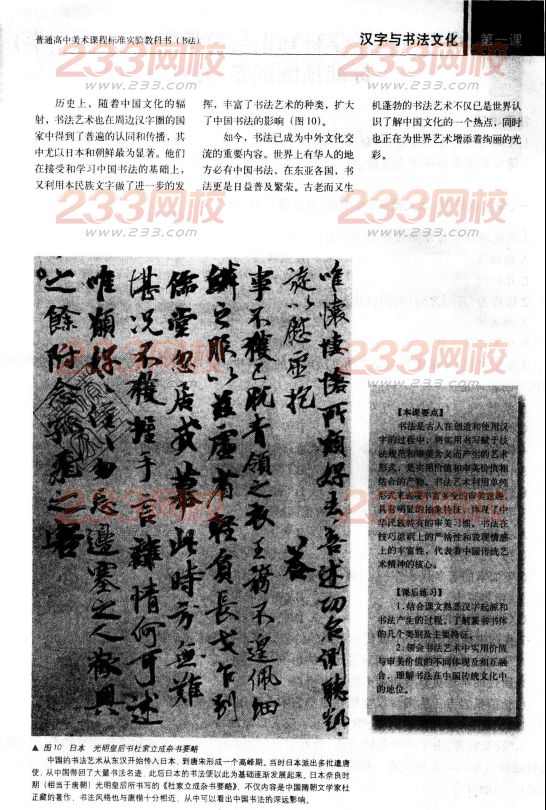 普通高中美术课程标准实验教科书（书法）
汉字与书法文化
第一课
历史上，随着中国文化的辐
射，书法艺术也在周边汉字圈的国
家中得到了普遍的认同和传播，其
中尤以日本和朝鲜最为显著。他们
在接受和学习中国书法的基础上，
又利用本民族文字做了进一步的发
挥，丰富了书法艺术的种类，扩大
了中国书法的影响（图10）。
如今，书法已成为中外文化交
流的重要内容。世界上有华人的地
方必有中国书法，在东亚各国，书
法更是日益普及繁荣。古老而又生
机蓬勃的书法艺术不仅已是世界认
识了解中国文化的一个热点，同时
也正在为世界艺术增添着绚丽的光
彩。
233网校
www.233.com
233网校
www.233.com
唯懷悽愴所願好去善述功台側聽凱
旋以慰
抱
答
事不獲已脱青領之衣王務不遑佩細
之服以茲虛
輕負長戈乍別
儒堂忽居戎幕此時方無難
堪況不獲握手言離情何可述
唯願好住勿忘邊塞之人歡興
之餘附念孤飛之客
【本课要点】
书法是古人在创造和使用汉
字的过程中，将实用书写赋予技
法规范和审美含义而产生的艺术
形式，是实用价值和审美价值相
结合的产物。书法艺术利用单纯
形式来表现丰富多变的审美意趣，
具有明显的抽象特征，体现了中
华民族特有的审美习惯。书法在
技巧原则上的严格性和表现情感
上的丰富性，代表着中国传统艺
术精神的核心。
【课后练习】
1.结合课文熟悉汉字起源和
书法产生的过程，了解篆书书体
的几个类别及主要特征。
2.领会书法艺术中实用价值
与审美价值的不同体现及相互融
合，理解书法在中国传统文化中
的地位。
▲ 图10 日本 光明皇后书杜家立成杂书要略
中国的书法艺术从东汉开始传入日本，到唐宋形成一个高峰期。当时日本派出多批遣唐
使，从中国带回了大量书法名迹，此后日本的书法便以此为基础逐渐发展起来。日本奈良时
期（相当于唐朝）光明皇后所书写的《杜家立成杂书要略》，不仅内容是中国隋朝文学家杜
正藏的著作，书法风格也与唐楷十分相近，从中可以看出中国书法的深远影响。